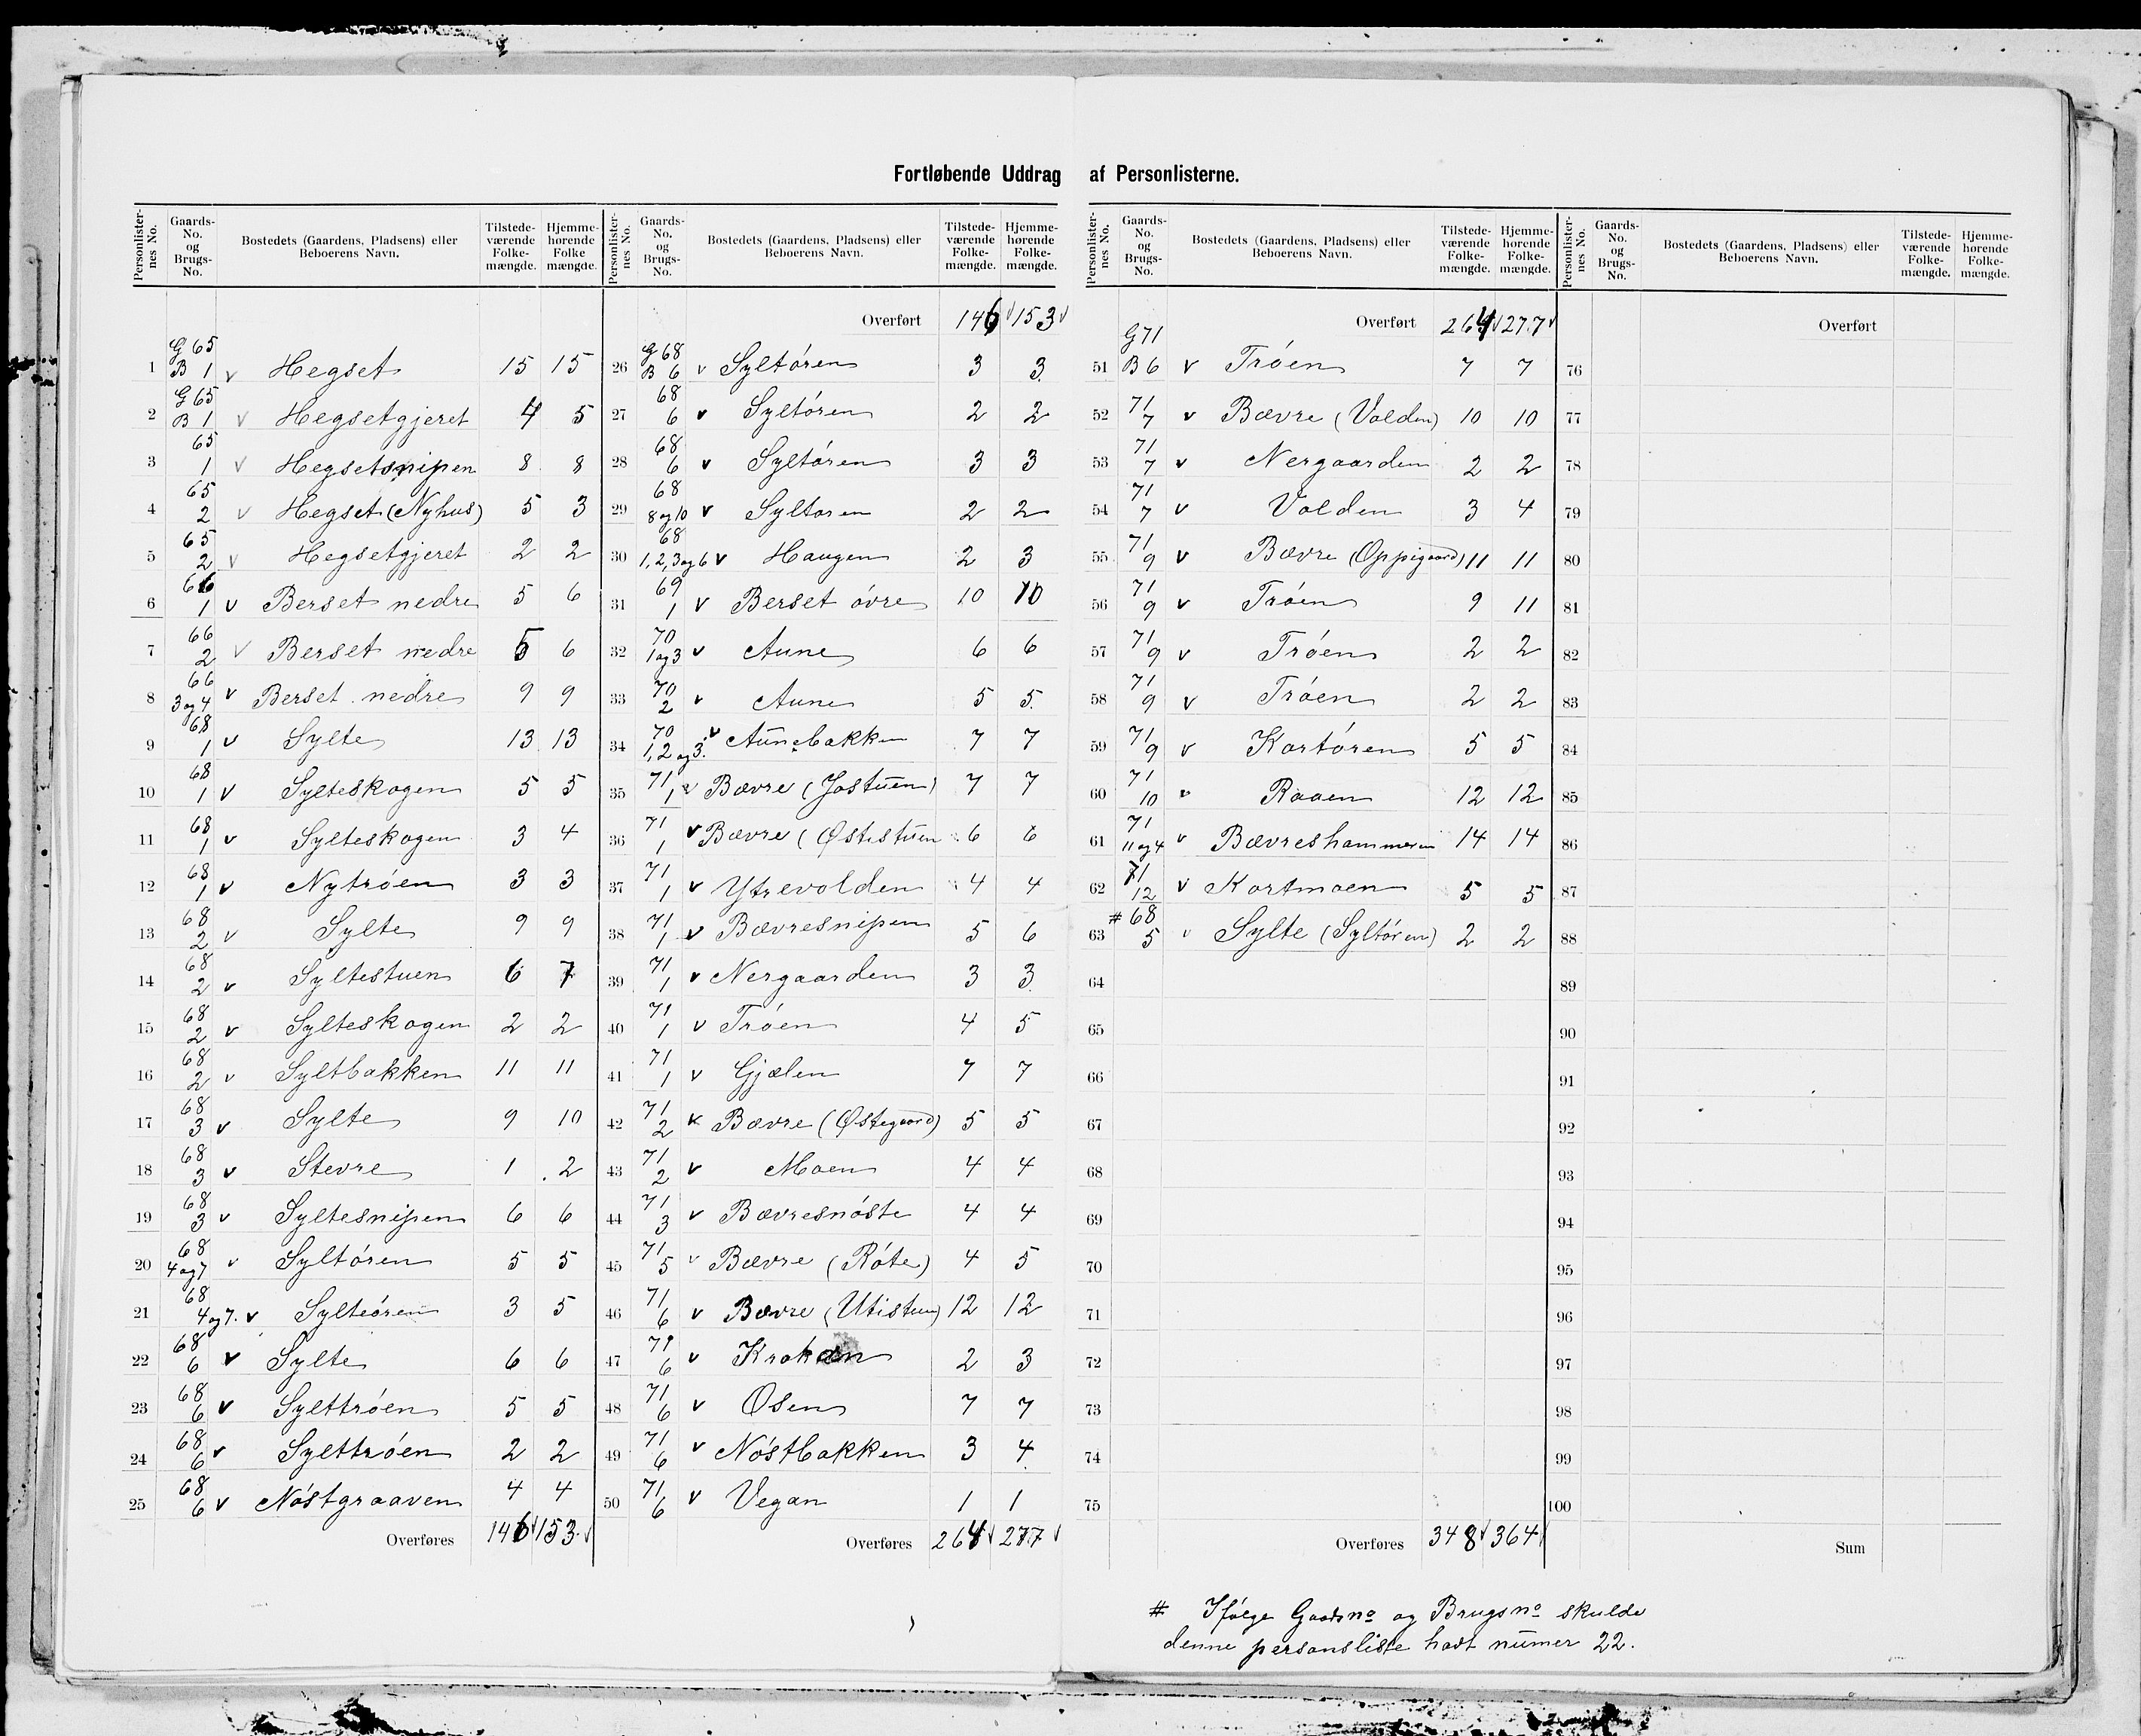 Fortløbende Uddrag af Personlisterne.
Personlisternes No. Gaards-No. og Brugs-No. Bostedets (Gaardens, Pladsens) eller Beboerens Navn. Tilstedeværende Folkemængde. Hjemmehørende Folkemængde.
1 G 65 B 1 v Hegset 15 15
2 G 65 B 1 v Hegsetgjeret 4 5
3 65 1 v Hegsetsnipen 8 8
4 65 2 v Hegset (Nyhus) 5 3
5 65 2 v Hegsetgjeret 2 2
6 66 1 v Berset nedre 5 6
7 66 2 v Berset nedre 5 6
8 66 3 og 4 v Berset nedre 9 9
9 68 1 v Sylte 13 13
10 68 1 v Sylteskogen 5 5
11 68 1 v Sylteskogen 3 4
12 68 1 v Nytrøen 3 3
13 68 2 v Sylte 9 9
14 68 2 v Syltestuen 6 7
15 68 2 v Sylteskogen 2 2
16 68 2 v Syltbakken 11 11
17 68 3 v Sylte 9 10
18 68 3 v Stevre 1 2
19 68 3 v Syltesnipen 6 6
20 68 4 og 7 v Syltøren 5 5
21 68 4 og 7. v Sylteøren 3 5
22 68 6 v Sylte 6 6
23 68 6 v Sylttrøen 5 5
24 68 6 v Sylttrøen 2 2
25 68 6 v Nøstgraaven 4 4
Overføres 146 v 153 v
Personlisternes No. Gaards-No. og Brugs-No. Bostedets (Gaardens, Pladsens) eller Beboerens Navn. Tilstedeværende Folkemængde. Hjemmehørende Folkemængde.
Overført 146 v 153 v
26 G 68 B 6 v Syltøren 3 3
27 68 6 v Syltøren 2 2
28 68 6 v Syltøren 3 3
29 68 8 og 10 v Syltøren 2 2
30 68 1, 2, 3 og 6 v Haugen 2 3
31 69 1 v Berset øvre 10 10
32 70 1 og 3 v Aune 6 6
33 70 2 v Aune 5 5
34 70 1, 2 og 3. v Aunebakken 7 7
35 71 1 v Bævre (Jostuen) 7 7
36 71 1 v Bævre (Østistuen 6 6
37 71 1 v Ytrevolden 4 4
38 71 1 v Bævresnipen 5 6
39 71 1 v Nergaarden 3 3
40 71 1 v Trøen 4 5
41 71 1 v Gjælen 7 7
42 71 2 v Bævre (Østegaard) 5 5
43 71 2 v Moen 4 4
44 71 3 v Bævresnøste 4 4
45 71 5 v Bævre (Røte) 4 5
46 71 6 v Bævre (Utistuen) 12 12
47 71 6 v Kroken 2 3
48 71 6 v Osen 7 7
49 71 6 v Nøstbakken 3 4
50 71 6 v Vegan 1 1
Overføres 264 v 277 v
Personlisternes No. Gaards-No. og Brugs-No. Bostedets (Gaardens, Pladsens) eller Beboerens Navn. Tilstedeværende Folkemængde. Hjemmehørende Folkemængde.
Overført 264 v 277 v
51 G 71 B 6 v Trøen 7 7
52 71 7 v Bævre (Volden) 10 10
53 71 7 v Nergaarden 2 2
54 71 7 v Volden 3 4
55 71 9 v Bævre (Oppigaard) 11 11
56 71 9 v Trøen 9 11
57 71 9 v Trøen 2 2
58 71 9 v Trøen 2 2
59 71 9 v Kortøren 5 5
60 71 10 v Raaen 12 12
61 71 11 og 4 v Bævreshammeren 14 14
62 71 12 v Kortmoen 5 5
63 # 68 5 v Sylte (Syltøren) 2 2
64
65
66
67
68
69
70
71
72
73
74
75
Overføres 348 v 364
Personlisternes No. Gaards-No. og Brugs-No. Bostedets (Gaardens, Pladsens) eller Beboerens Navn. Tilstedeværende Folkemængde. Hjemmehørende Folkemængde.
Overført
76
77
78
79
80
81
82
83
84
85
86
87
88
89
90
91
92
93
94
95
96
97
98
99
100
Sum
# Ifølge Gaards no og Brugs no skulde
denne personsliste havt numer 22.